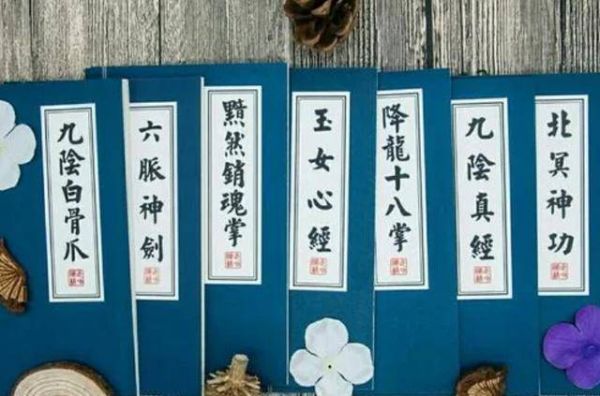 九陰白骨爪
六脈神劍
黯然銷魂掌
玉女心經
降龍十八掌
九陰真經
北冥神功